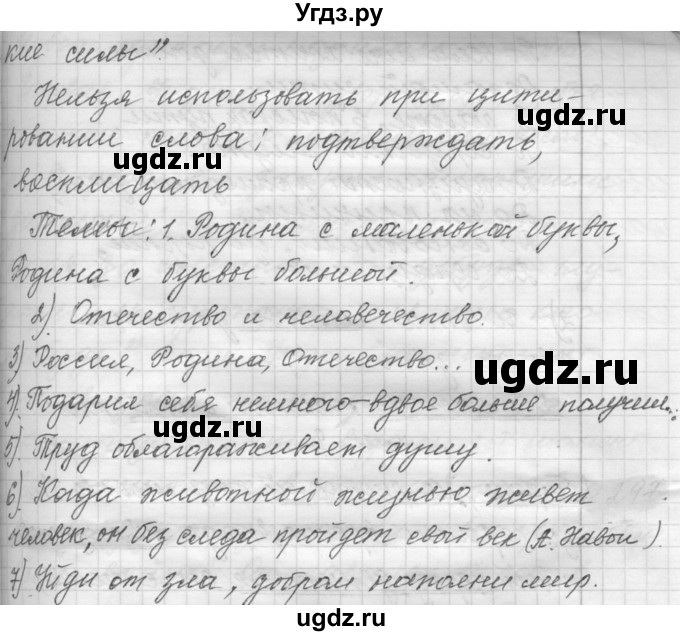 Угдз.ру
кие силы".
Нельзя использовать при цити-
ровании слова: подтверждать,
ugdz.ru
восклицать
ugdz.ru
Темы: 1. Родина с маленькой буквы,
Родина с буквы большой.
2). Отечество и человечество.
3) Россия, Родина, Отечество...
ugdz.ru
4). Подарил себя немного - вдвое больше получил...
ugdz.ru
5). Труд облагораживает душу.
6). Когда животной жизнью живет
человек, он без следа пройдет свой век (А. Навои).
ugdz.ru
7). Уйди от зла, добром наполни мир.
ugdz.ru